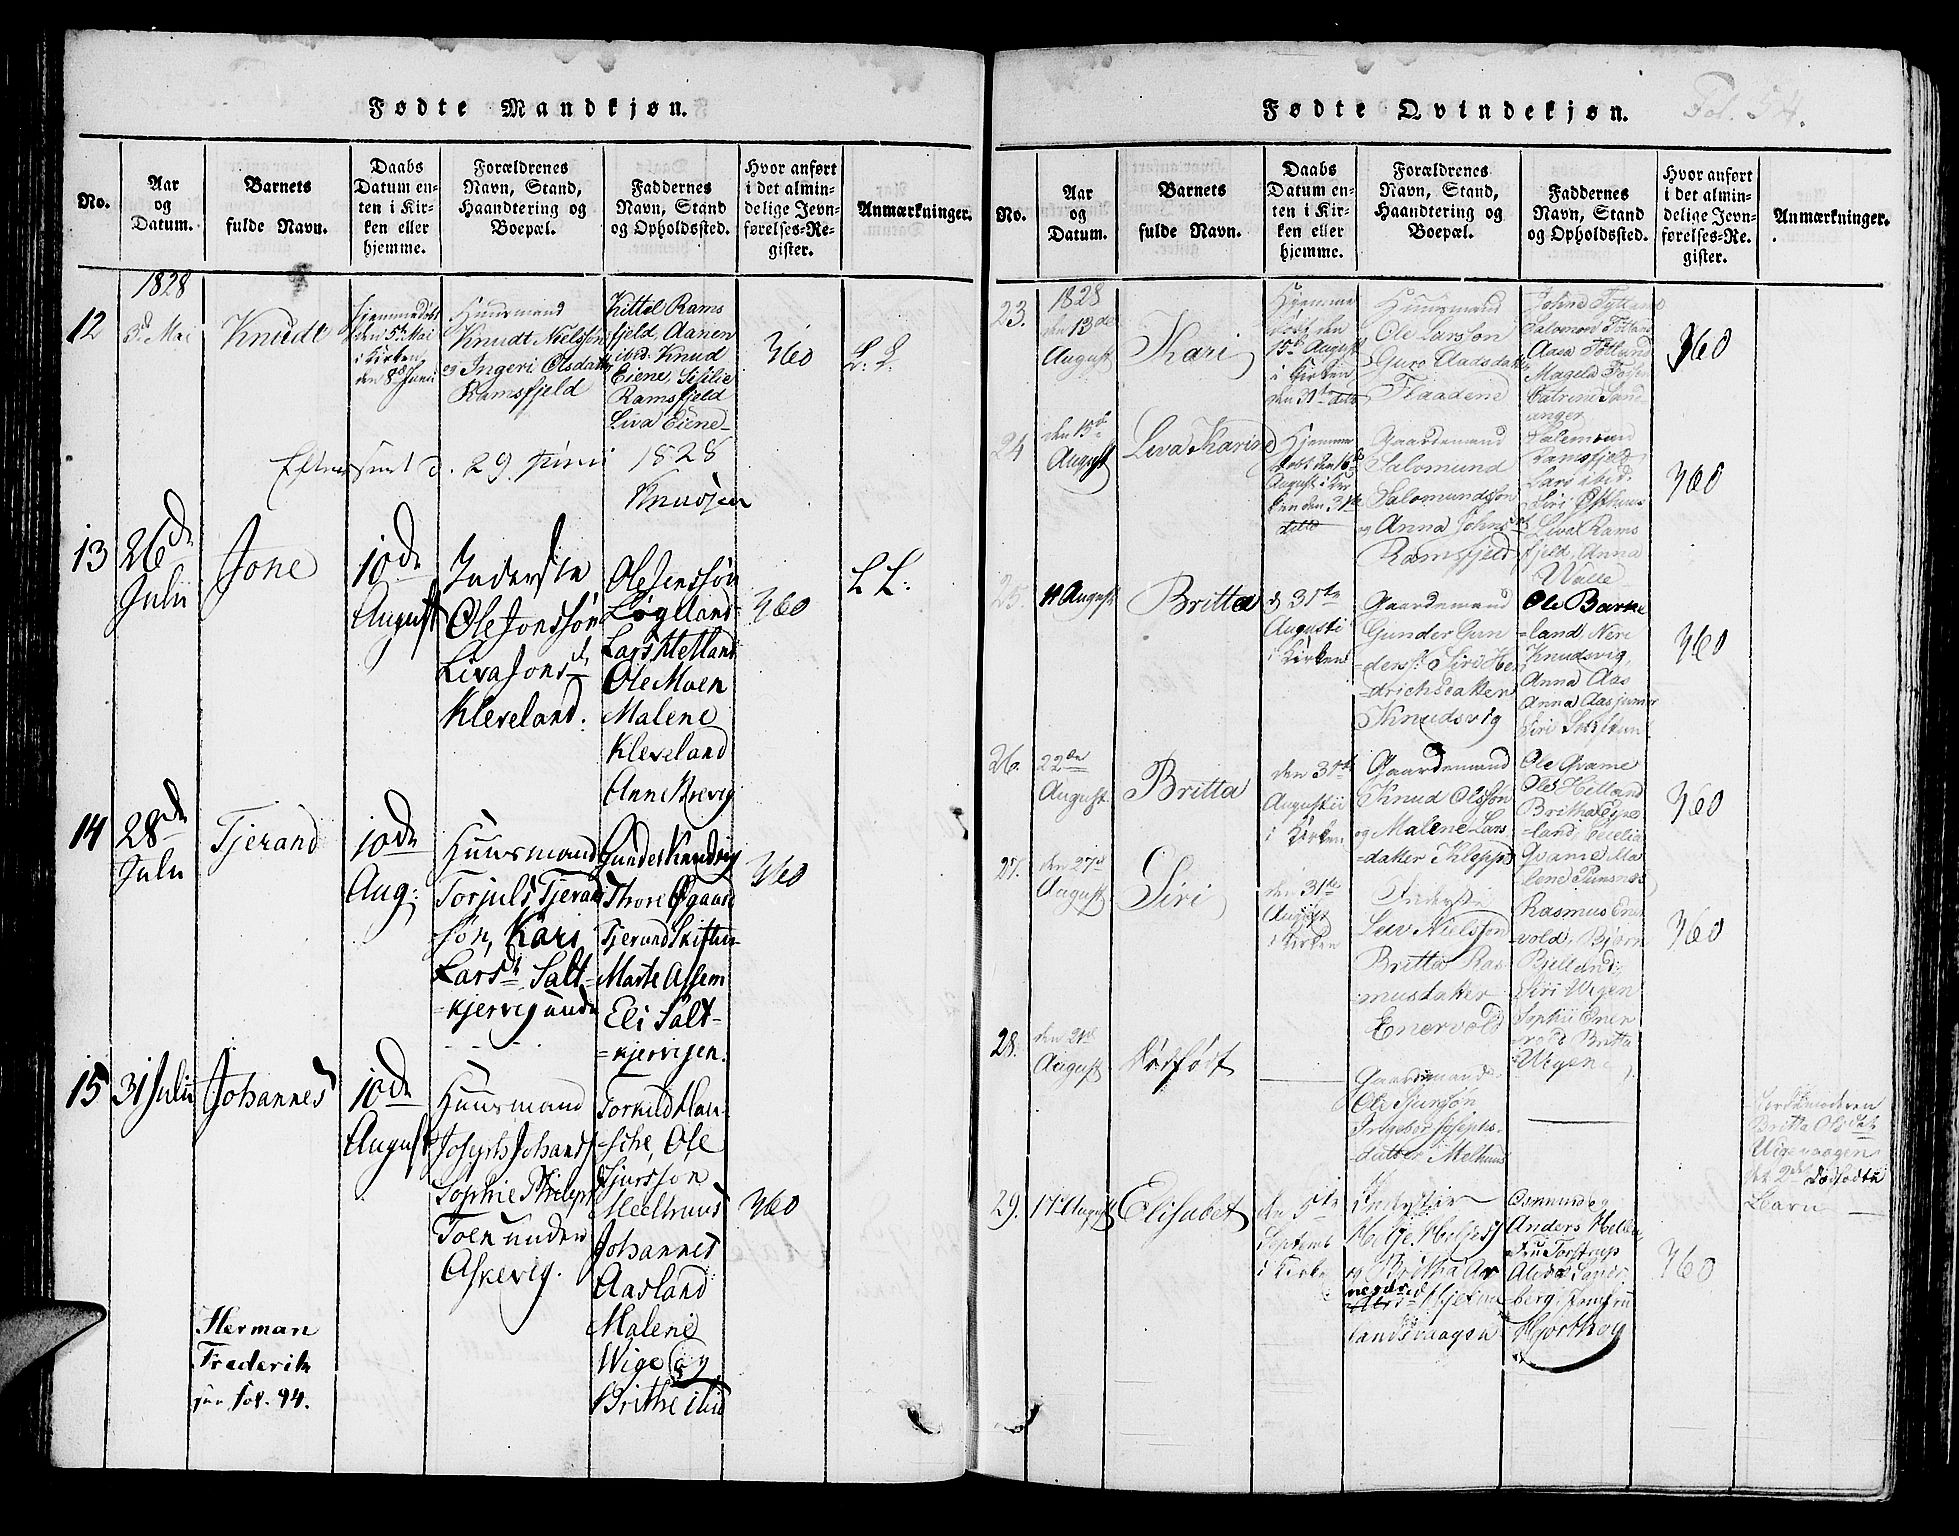 Fødte Mandkjøn.
No.
Aar
og
Datum.
Barnets
fulde Navn.
Daabs
Datum en-
ten i Kir-
ken eller
hjemme.
Forældrenes
Navn, Stand,
Haandtering og
Boepæl.
Faddernes
Navn, Stand
og Opholdssted.
Hvor anført
i det almin-
delige Jevn-
førelses-Re-
gister.
Anmærkninger.
1828
12
3d Mai
Knudt
Hjemmedøbt
den 5te Mai
i Kirken
den 8de Juni
Huusmand
Knudt Nielssøn
og Ingeri Olsdatter
Ramsfjeld
Kittel Rams
fjeld, Aanen
ibid. Knud
Eiene, Sisilie
Ramsfjeld
Liva Eiene
360
L. L.
Efterseet d. 29 Juni 1828
Knudsen
13
26de
Julii
Jone
10de
August
Inderste
Ole Jonssøn
Liva Jonsd
Kleveland.
Ole Jenssøn
Løgeland
Lars Hetland
Ole Moen
Malene
Kleveland
Anne Brevig
360
L L.
14
28de
Julii
Tjerand
10de
Aug:
Huusmand
Torjuls Tjerand
søn, Kari
Larsd Salt-
=kjervig unde
Gunder Knudvig
Thore Øgaard
Tjerand Skiften
Marte Assem
Eli Salt-
=kjervigen.
360
15
31 Julii
Johannes
10de
August
Huusmand
Joseph Johans
Sophie Philips
Toen under
Askevig.
Torkild Hau-
sche, Ole
Sjurssøn
Meelhuus
Johannes
Aasland
Malene
Wige og
Brithe ibid
360
Herman
Frederik
see Fol. 94.
Fødte Qvindekjøn.
Fol. 54.
No.
Aar
og
Datum.
Barnets
fulde Navn.
Daabs
Datum en-
ten i Kir-
ken eller
hjemme.
Forældrenes
Navn, Stand,
Haandtering og
Boepæl.
Faddernes
Navn, Stand
og Opholdssted.
Hvor anført
i det almin-
delige Jevn-
førelses-Re-
gister.
Anmærkninger.
23.
1828
den 13de
August
Kari
Hjemme
døbt den
15de August
i Kirken
den 31te detto
Huusmand
Ole Larssøn
Guro Aadsdatter
Flaadene
Salomon Totland
Aasa Totland
Magela
Catrine Sand
anger
360
24
den 15de
August
Liva Karine
Hjemme
døbt den 16de
August i Kir
ken den 31te
detto
Gaardemand
Salomund
Salomundssøn
og Anna Johnsd
Ramsfjeld
Salomund
Ramsfjeld
Lars ibid:
Siri Østhuus
Liva Rams
fjeld, Anna
Walle
360
25.
14 August
Britta
d 31te
Augusti
i Kirken
Gaardemand
Gunder Gun
ders: Siri He
drichsdatter
Knudsvig
Ole Barke
-land, Neri
Knudsvig,
Anna Aas
Anna Aas junior
360
26.
22de
August
Britta
den 31te
Augustii
i Kirken
Gaardemand
Knud Olssøn
og Malene Lars
-datter Klepps
Ole Qvame
Oles Hilland
Britha Ege
-land, Cecelia
Qvame Ma
lene Punsnes
360
27.
den 27de
August
Siri
den 31te
August
i Kirken
Inderste
Leiv Nielssøn
Britta Ras
musdatter
Enervold
Rasmus Ener
vold, Bjørn
Bjelland,
Siri Wigen
Sophie Ener
vold Britta
Wigene
360
28.
den 21de
August
Dødfødt
Gaardemand
Ole Sjursøn
Ingebor Josephs-
datter Melhuus
Jordemoderen
Britta Olsdatter
den 2det dødfødte
Barn
29.
17de August
Elisabet
den 5te
Septemb
i Kirke
Inderster
Helje Heljes
og Britha Aar
nesdred
Hjelme
landsvaagen
Osmund og
Anders Helle
Fru Torstrup
Alida Sand
berg, Jomfru
Hjorthog
360